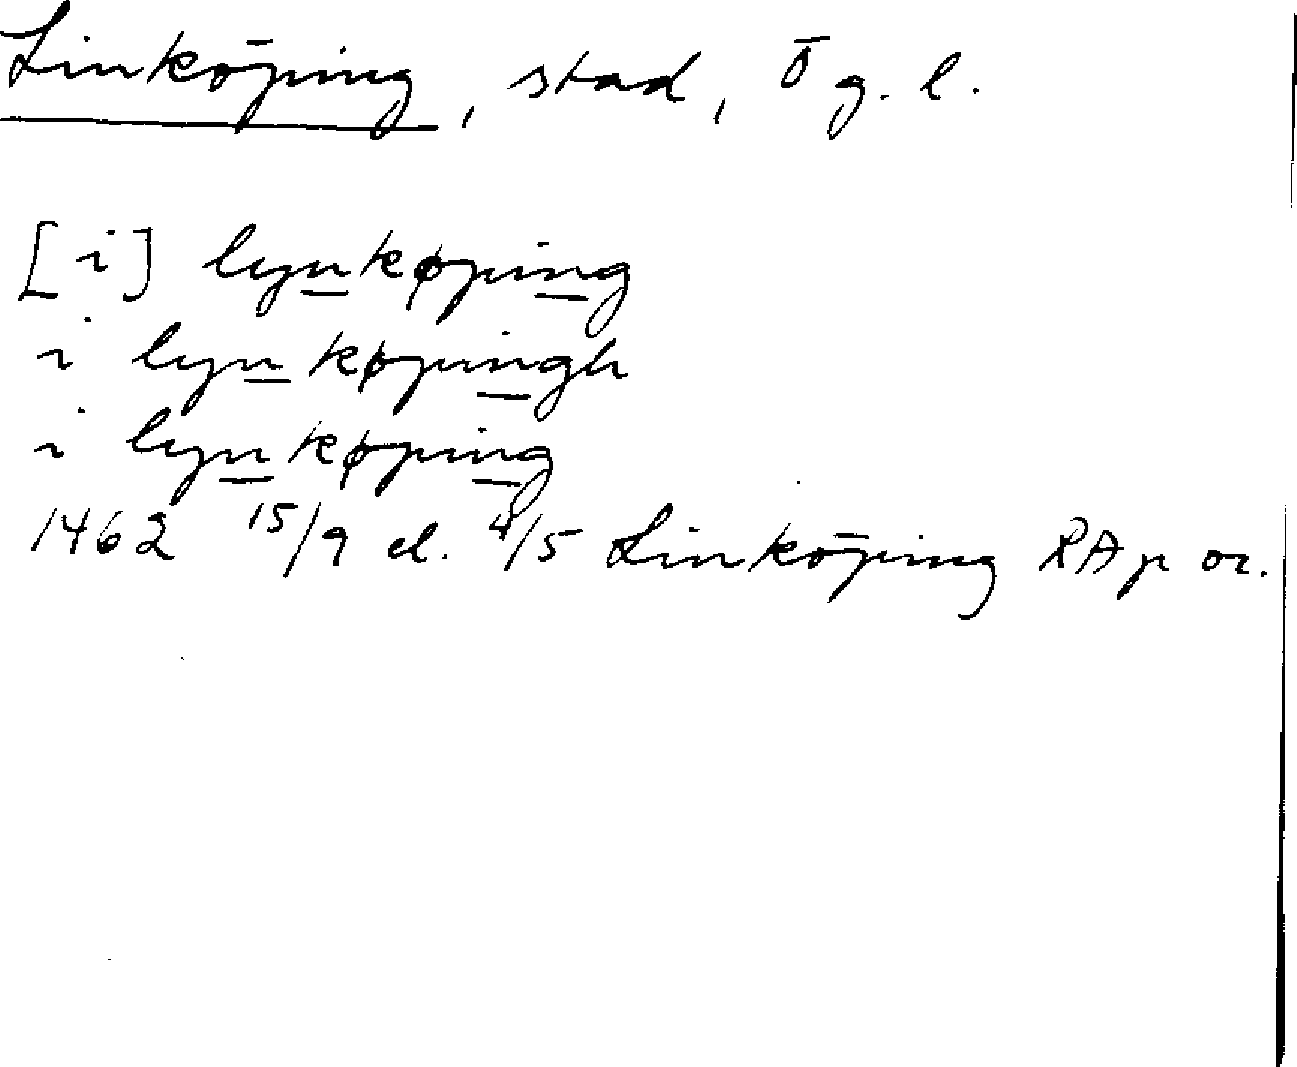 Linköping, stad, Ög. l.
[i] lynkøping
i lynkøpingh
i lynkøping
1462 15/9 el. 4/5 Linköping RAp or.